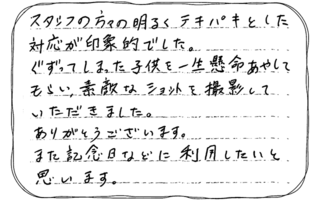 スタッフの方々の明るくテキパキとした
対応が印象的でした。
ぐずってしまった子供を一生懸命あやして
もらい、素敵なショットを撮影して
いただきました。
ありがとうございます。
また記念日などに利用したいと
思います。